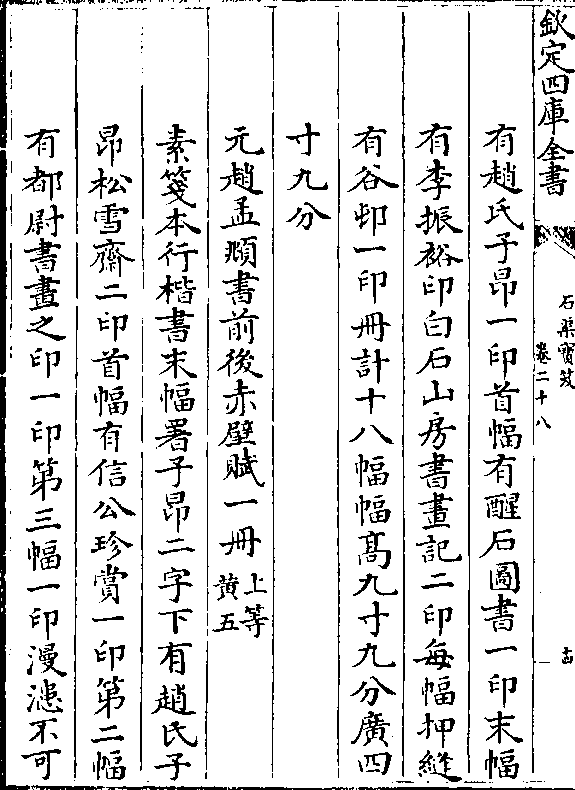 欽定四庫全書
石渠寶笈
卷二十八
十四
有趙氏子昂一印首幅有醒石圖書一印末幅
有李振裕印白石山房書畫記二印每幅押縫
有谷邨一印冊計十八幅幅髙九寸九分廣四
寸九分
元趙孟頫書前後赤壁賦一冊上等黄五
素箋本行楷書末幅署子昂二字下有趙氏子
昂松雪齋二印首幅有信公珍賞一印第二幅
有都尉書畫之印一印第三幅一印漫漶不可